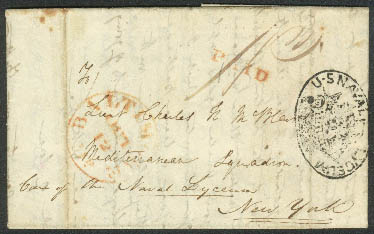 PAID
To
Lieut Charles H McBlair
Mediterranean Squadron
Care of the Naval Lyceum
New York
U·S NAVAL LYCEUM
BALTIMORE